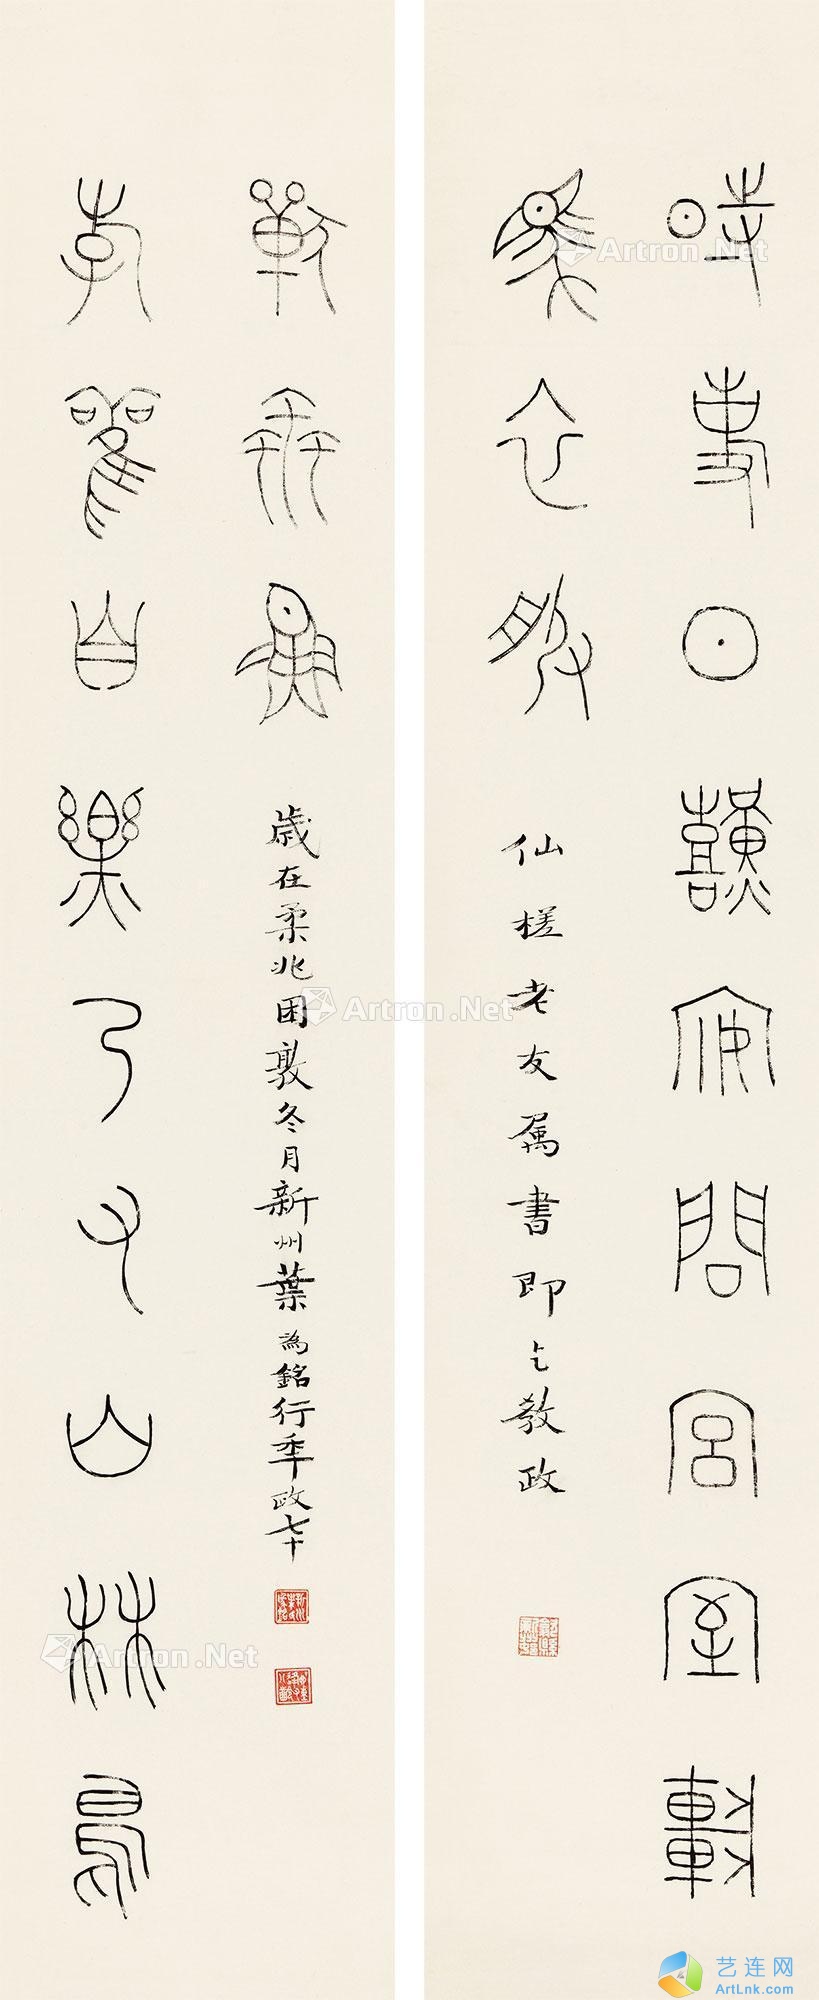 時事日艱安問宮室車
馬衣服
仙槎老友屬書即乞教政
舊自樂乃又山林
獸魚
歲在柔兆困敦冬月新州葉為銘行年政七十
Artron.Net
Artron.Net
Artron.Net
Artron.Net
艺连网
ArtLnk.com